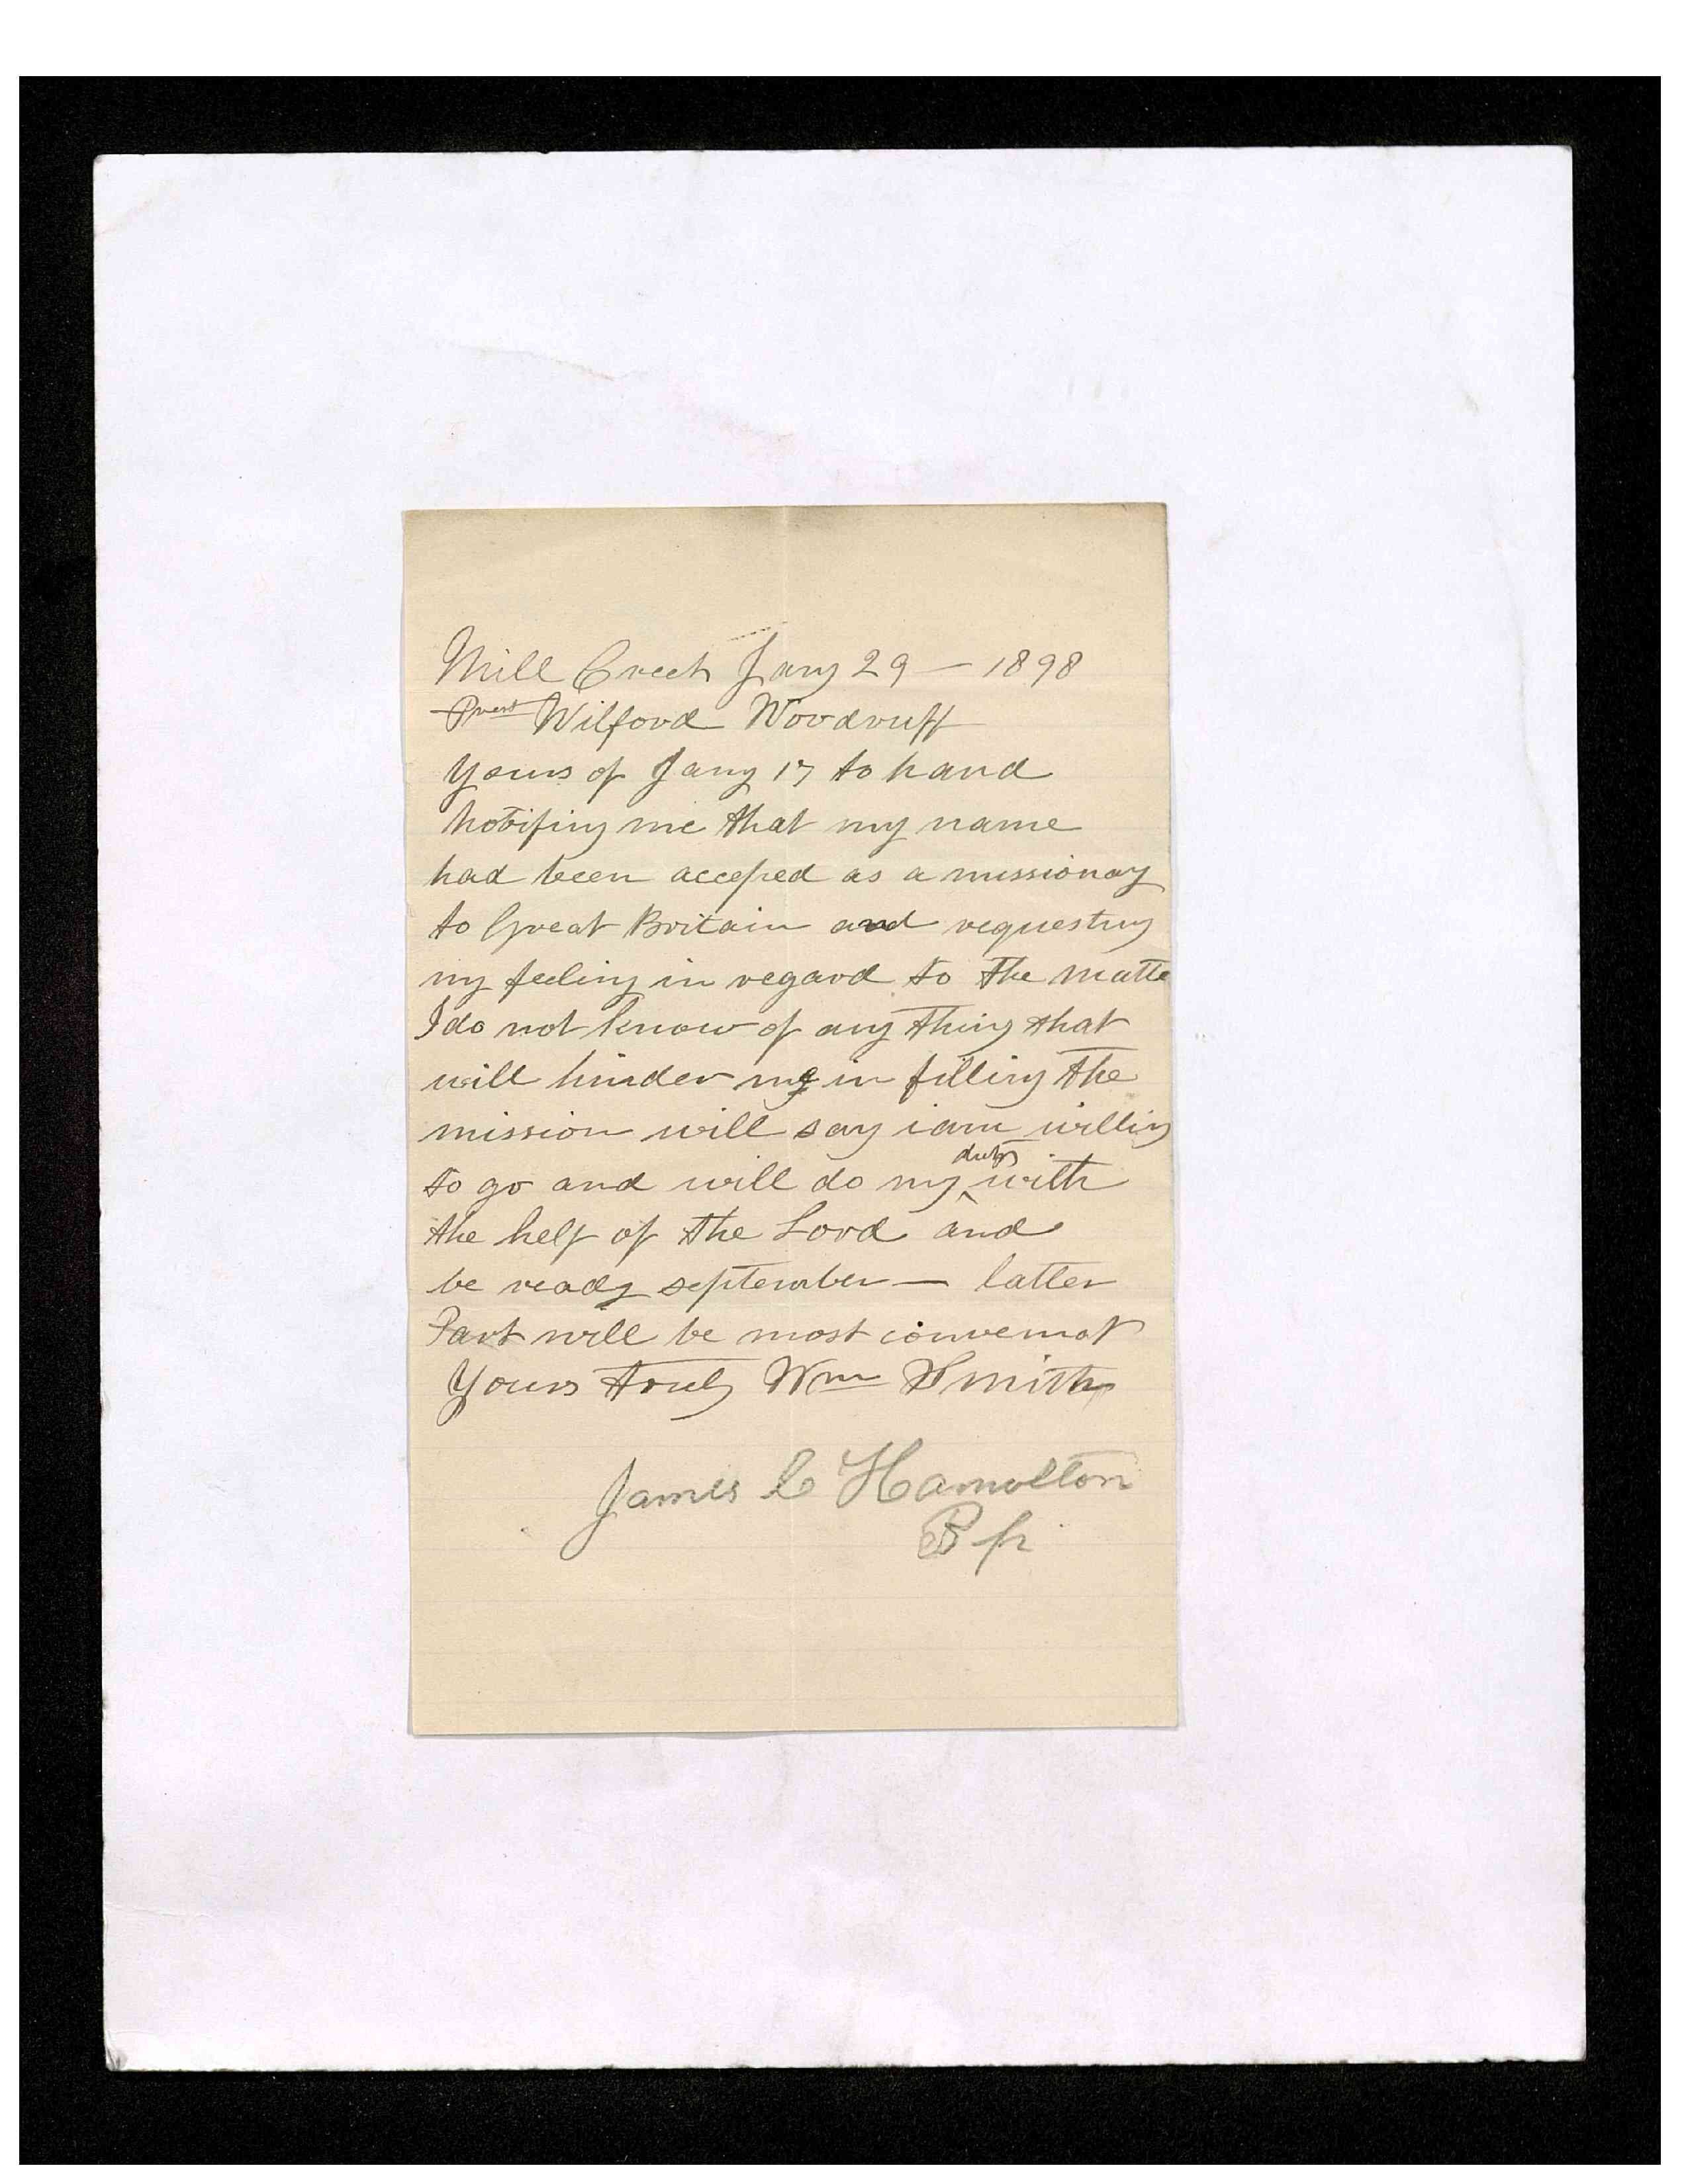 Mill Creek Jany 29 — 1898
Prest Wilford Woodruff
Yours of Jany 17 to hand
notifing me that my name
had been acceped as a missionay
to Great Britain and requesting
my feeling in regard to the matte
I do not know of any thing that
will hinder me in filling the
mission will say i am willing
to go and will do my duty with
the help of the Lord and
be ready september — latter
Part will be most convenat
Yours truly Wm Smith
James C Hamilton
Bp